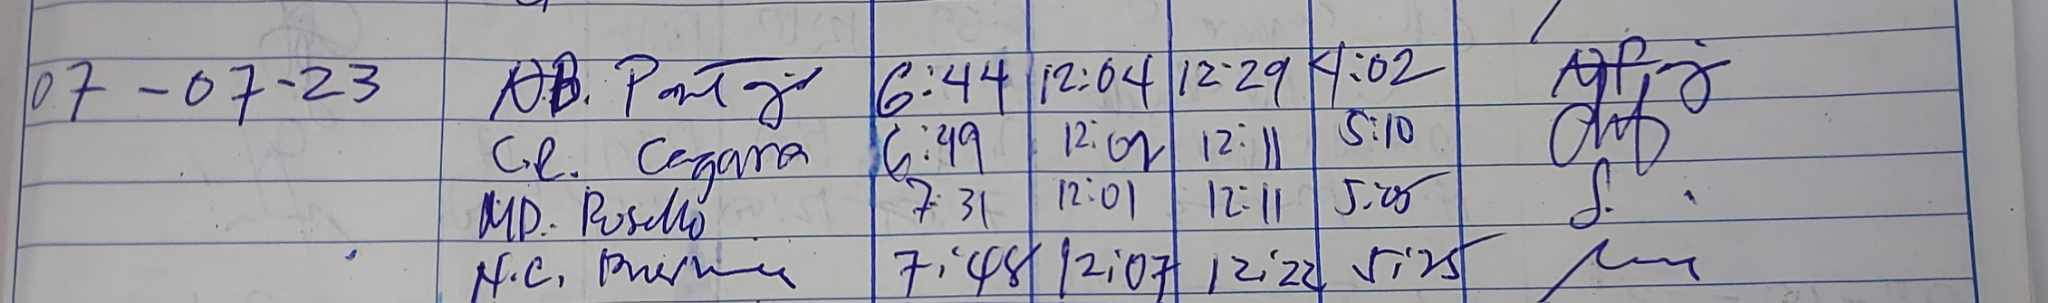 07-07-23 A.B. 6:44 12:04 12:29 4:02
C.R. Cagara 6:49 12:02 12:11 5:10
MD. Rosello 7:31 12:01 12:11 5:05
N.C. 7:48 12:07 12:22 5:25